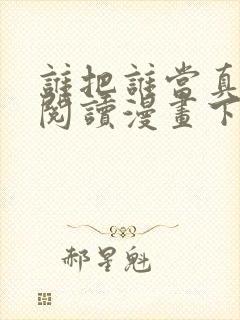 誰把誰當真
閱讀漫畫下
郝星魁